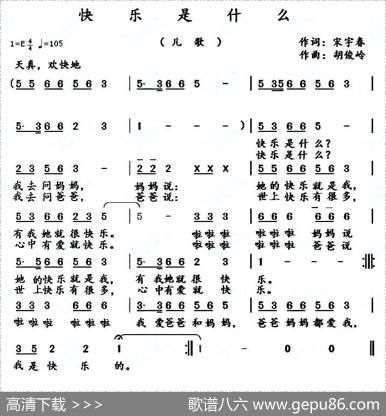 快乐是什么
1=E 4/4 ♩=105
（儿歌）
作词：宋宇春
作曲：胡俊岭
天真，欢快地
(5 5 6 6 5 6 3 | 5· 3 6 6 5 - | 5 3 5 6 6 5 6 3 |
5· 3 6 6 2 3 | 1 - - - ) | 5 3 6 6 5 - |
快乐是什么？
快乐是什么？
2 3 5 3 6 - | 2 2 2 X X X | 5 5 6 6 5 6 3 |
我去问妈妈， 妈妈说： 她的快乐就是我，
我去问爸爸， 爸爸说： 世上快乐有很多，
5 3 6 6 2 2 3 5 | 5 - 3 3 3 | 6 6 6 5 6 3 |
有我她就很快乐。 啦啦啦 啦啦啦 妈妈说
心中有爱就快乐。 啦啦啦 啦啦啦 爸爸说
5· 5 5 6 5 6 3 | 5· 3 6 6 2 3 | 1 - - - |
她的快乐就是我， 有我她就很快乐。
世上快乐有很多， 心中有爱就快乐。
3 3 3 6 6 6 | 5· 3 2 2 2 3 | 5· 3 6 6 5 6 3 |
啦啦啦 啦啦啦 我爱爸爸和妈妈， 爸爸妈妈都爱我，
3 5 2 2 1 :‖ 1 - 0 0 ‖
我是快乐的。
高清下载 >>>
歌谱八六 www.gepu86.com